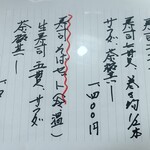 寿司七貫 巻き物六本
サラダ 茶碗蒸し 一四〇〇円
寿司そばセット(冷、温)
生寿司 五貫 サラダ
茶碗蒸し